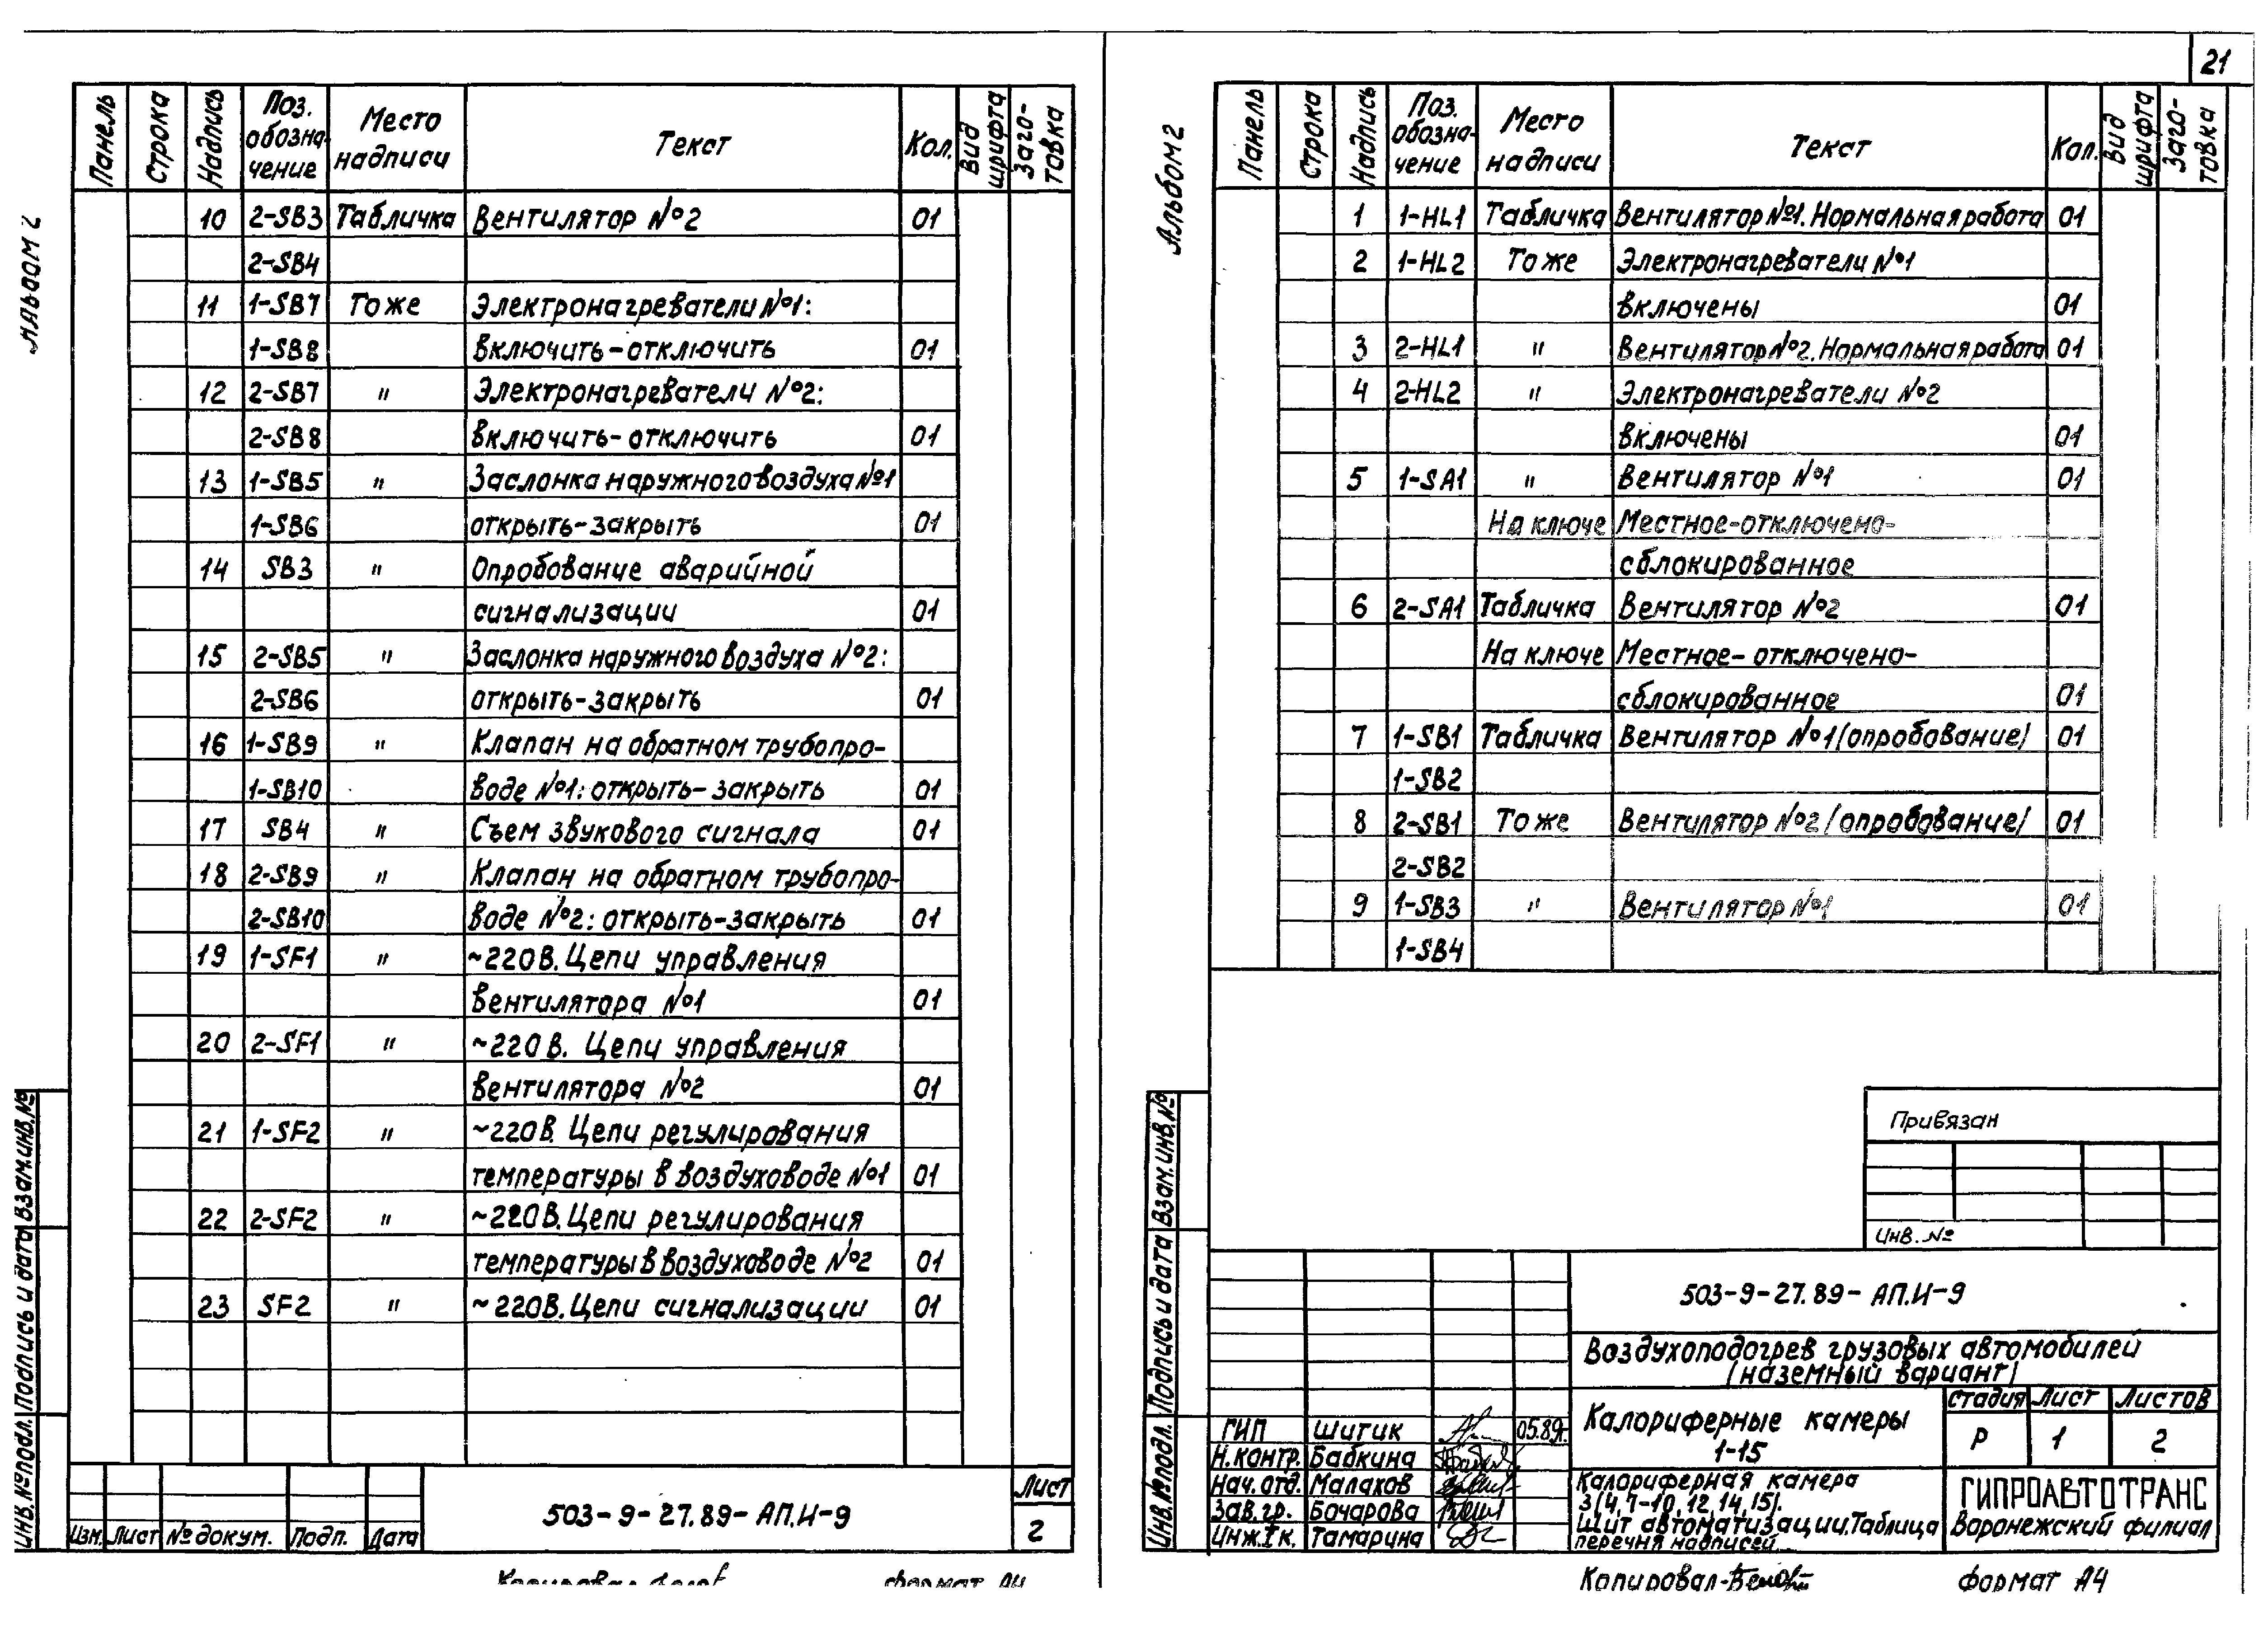 21
Альбом 2
Панель Строка Надпись Поз. обозна-чение Место надписи Текст Кол. Вид шрифта Заго-товка
10 2-SB3 Табличка Вентилятор №2 01
2-SB4
11 1-SB7 То же Электронагреватели №1:
1-SB8 включить-отключить 01
12 2-SB7 " Электронагреватели №2:
2-SB8 включить-отключить 01
13 1-SB5 " Заслонка наружного воздуха №1
1-SB6 открыть-закрыть 01
14 SB3 " Опробование аварийной
сигнализации 01
15 2-SB5 " Заслонка наружного воздуха №2:
2-SB6 открыть-закрыть 01
16 1-SB9 " Клапан на обратном трубопро-
1-SB10 воде №1: открыть-закрыть 01
17 SB4 " Съем звукового сигнала 01
18 2-SB9 " Клапан на обратном трубопро-
2-SB10 воде №2: открыть-закрыть 01
19 1-SF1 " ~220В. Цепи управления
вентилятора №1 01
20 2-SF1 " ~220В. Цепи управления
вентилятора №2 01
21 1-SF2 " ~220В. Цепи регулирования
температуры в воздуховоде №1 01
22 2-SF2 " ~220В. Цепи регулирования
температуры в воздуховоде №2 01
23 SF2 " ~220В. Цепи сигнализации 01
Инв.№подл. Подпись и дата Взам.инв.№
Изм. Лист № докум. Подп. Дата
503-9-27.89-АП.И-9
Лист
2
Копировал
формат А4
Альбом 2
Панель Строка Надпись Поз. обозна-чение Место надписи Текст Кол. Вид шрифта Заго-товка
1 1-HL1 Табличка Вентилятор №1. Нормальная работа 01
2 1-HL2 То же Электронагреватели №1
включены 01
3 2-HL1 " Вентилятор №2. Нормальная работа 01
4 2-HL2 " Электронагреватели №2
включены 01
5 1-SA1 " Вентилятор №1 01
На ключе Местное-отключено-
сблокированное
6 2-SA1 Табличка Вентилятор №2 01
На ключе Местное-отключено-
сблокированное 01
7 1-SB1 Табличка Вентилятор №1 /опробование/ 01
1-SB2
8 2-SB1 То же Вентилятор №2 /опробование/ 01
2-SB2
9 1-SB3 " Вентилятор №1 01
1-SB4
Привязан
Инв. №
Инв.№подл. Подпись и дата Взам.инв.№
503-9-27.89-АП.И-9
Воздухоподогрев грузовых автомобилей
/наземный вариант/
ГИП Шитик 05.89г.
Н.контр. Бабкина
Нач.отд. Малахов
Зав.гр. Бочарова
Инж.I к. Тамарина
Калориферные камеры
1-15
Стадия Лист Листов
Р 1 2
Калориферная камера
3/4,7-10,12,14,15/.
Щит автоматизации. Таблица
перечня надписей
ГИПРОАВТОТРАНС
Воронежский филиал
Копировал-
формат А4